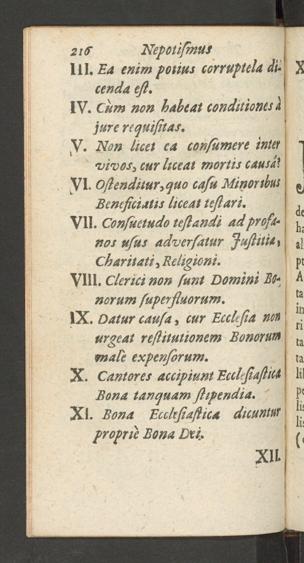 216 Nepotiſmus
III. Ea enim potius corruptela di-
cenda eſt.
IV. Cùm non habeat conditiones à
jure requiſitas.
V. Non licet ea conſumere inter
vivos, cur liceat mortis causâ?
VI. Oſtenditur, quo caſu Minoribus
Beneficiatis liceat teſtari.
VII. Conſuetudo teſtandi ad profa-
nos uſus adverſatur Juſtitiæ,
Charitati, Religioni.
VIII. Clerici non ſunt Domini Bo-
norum ſuperfluorum.
IX. Datur cauſa, cur Eccleſia non
urgeat reſtitutionem Bonorum
malè expenſorum.
X. Cantores accipiunt Eccleſiaſtica
Bona tanquam ſtipendia.
XI. Bona Eccleſiaſtica dicuntur
propriè Bona Dei.
XII.